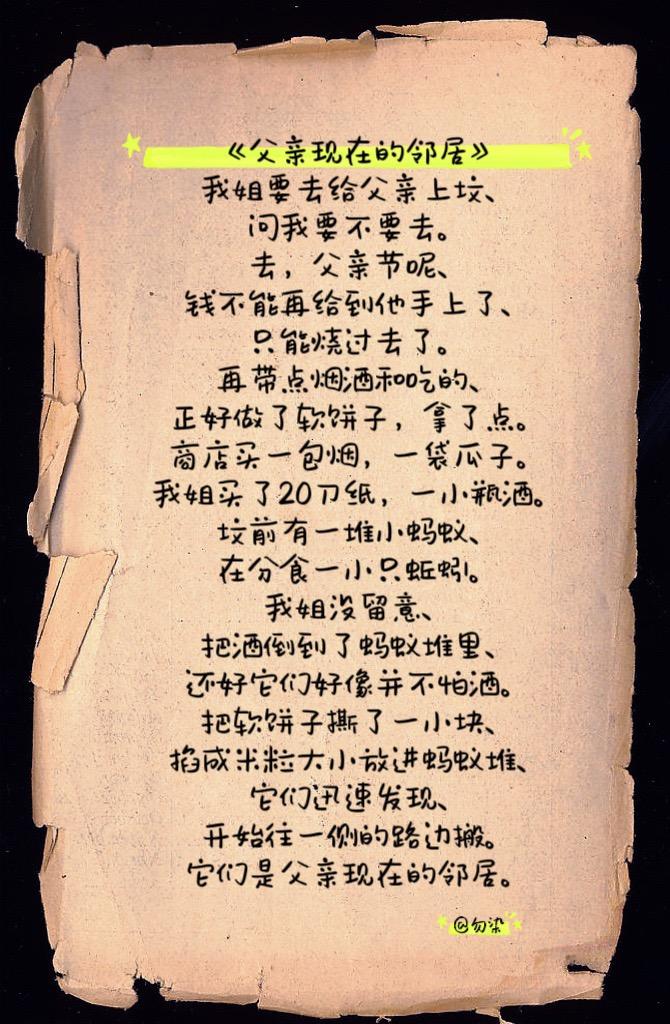 《父亲现在的邻居》
我姐要去给父亲上坟、
问我要不要去。
去，父亲节呢、
钱不能再给到他手上了、
只能烧过去了。
再带点烟酒和吃的、
正好做了软饼子，拿了点。
商店买一包烟，一袋瓜子。
我姐买了20刀纸，一小瓶酒。
坟前有一堆小蚂蚁、
在分食一小只蚯蚓。
我姐没留意、
把酒倒到了蚂蚁堆里、
还好它们好像并不怕酒。
把软饼子撕了一小块、
掐成米粒大小放进蚂蚁堆、
它们迅速发现、
开始往一侧的路边搬。
它们是父亲现在的邻居。
@勿染